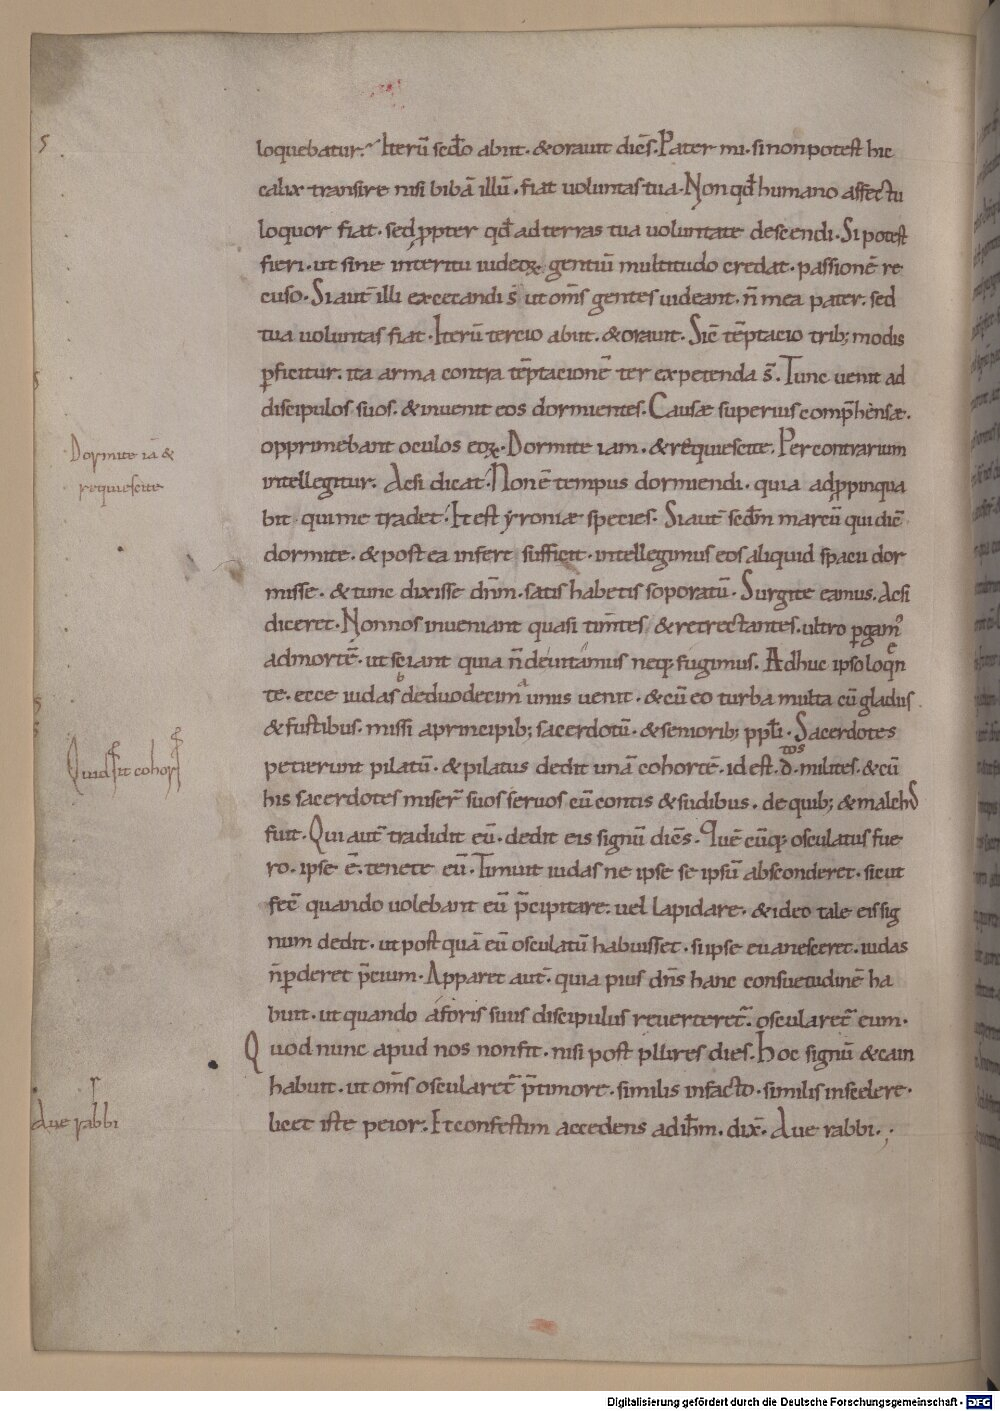 loquebatur. Iterū scd̄o abiit. & orauit diēs. Pater mi. si non potest hic
calix transire nisi bibā illū. fiat uoluntas tua. Non qd̄ humano affectu
loquor fiat. sed ꝓpter qd̄ ad terras tua uoluntate descendi. Si potest
fieri. ut sine interitu iudeoꝝ gentiū multitudo credat. passionē re
cuso. Si aut̄ illi excecandi s̄ ut om̄s gentes uideant. n̄ mea pater. sed
tua uoluntas fiat. Iterū tercio abiit. & orauit. Sic̄ tēptacio trib; modis
ꝑficitur. ita arma contra tēptacionē ter expetenda s̄. Tunc uenit ad
discipulos suos. & inuenit eos dormientes. Causæ superius comp̄hensæ.
opprimebant oculos eoꝝ. Dormite iam. & requiescite. Per contrarium
Dormite iā &
requiescite
intellegitur. Acsi dicat. Non ē tempus dormiendi. quia adꝓpinqua
bit qui me tradet. Et est yroniæ species. Si aut̄ scdm̄ marcū qui dic̄
dormite. & post ea infert sufficit. intellegimus eos aliquid spacii dor
misse. & tunc dixisse dn̄m. satis habetis soporatū. Surgite eamus. Acsi
diceret. Non nos inueniant quasi tim̄tes & retrectantes. ultro ꝑgam᾽
ad mortē. ut sciant quia n̄ deuitamus neq; fugimus. Adhuc ipso loqn̄
te. ecce iudas de duodecim unus uenit. & cū eo turba multa cū gladiis
& fustibus. missi a principib; sacerdotū. &seniorib; ppl̄i. Sacerdotes
Quid sit cohors
petierunt pilatū. & pilatus dedit unā cohortē. id est .d.tos milites. & cū
his sacerdotes miser̄ suos seruos cū contis & sudibus. de quib; & malch᾽
fuit. Qui aut̄ tradidit eū. dedit eis signū diēs. Quē cūq; osculatus fue
ro. ipse ē. tenete eū. Timuit iudas ne ipse se ipsū absconderet. sicut
fec̄ quando uolebant eū p̄cipitare. uel lapidare. & ideo tale eis sig
num dedit. ut post quā eū osculatū habuisset. si ipse euanesceret. iudas
n̄ ꝑderet p̄cium. Apparet aut̄. quia pius dn̄s hanc consuetudinē ha
buit. ut quando a foris suus discipulus reuerteret̄. oscularet̄ eum.
Quod nunc apud nos non fit. nisi post pl̄ures dies. Hoc signū & cain
habuit. ut om̄s oscularet̄ p̄ timore. similis in facto. similis in scelere.
Aue rabbi
licet iste peior. Et confestim accedens ad ih̄m. dix̄. Aue rabbi.
Digitalisierung gefördert durch die Deutsche Forschungsgemeinschaft - DFG